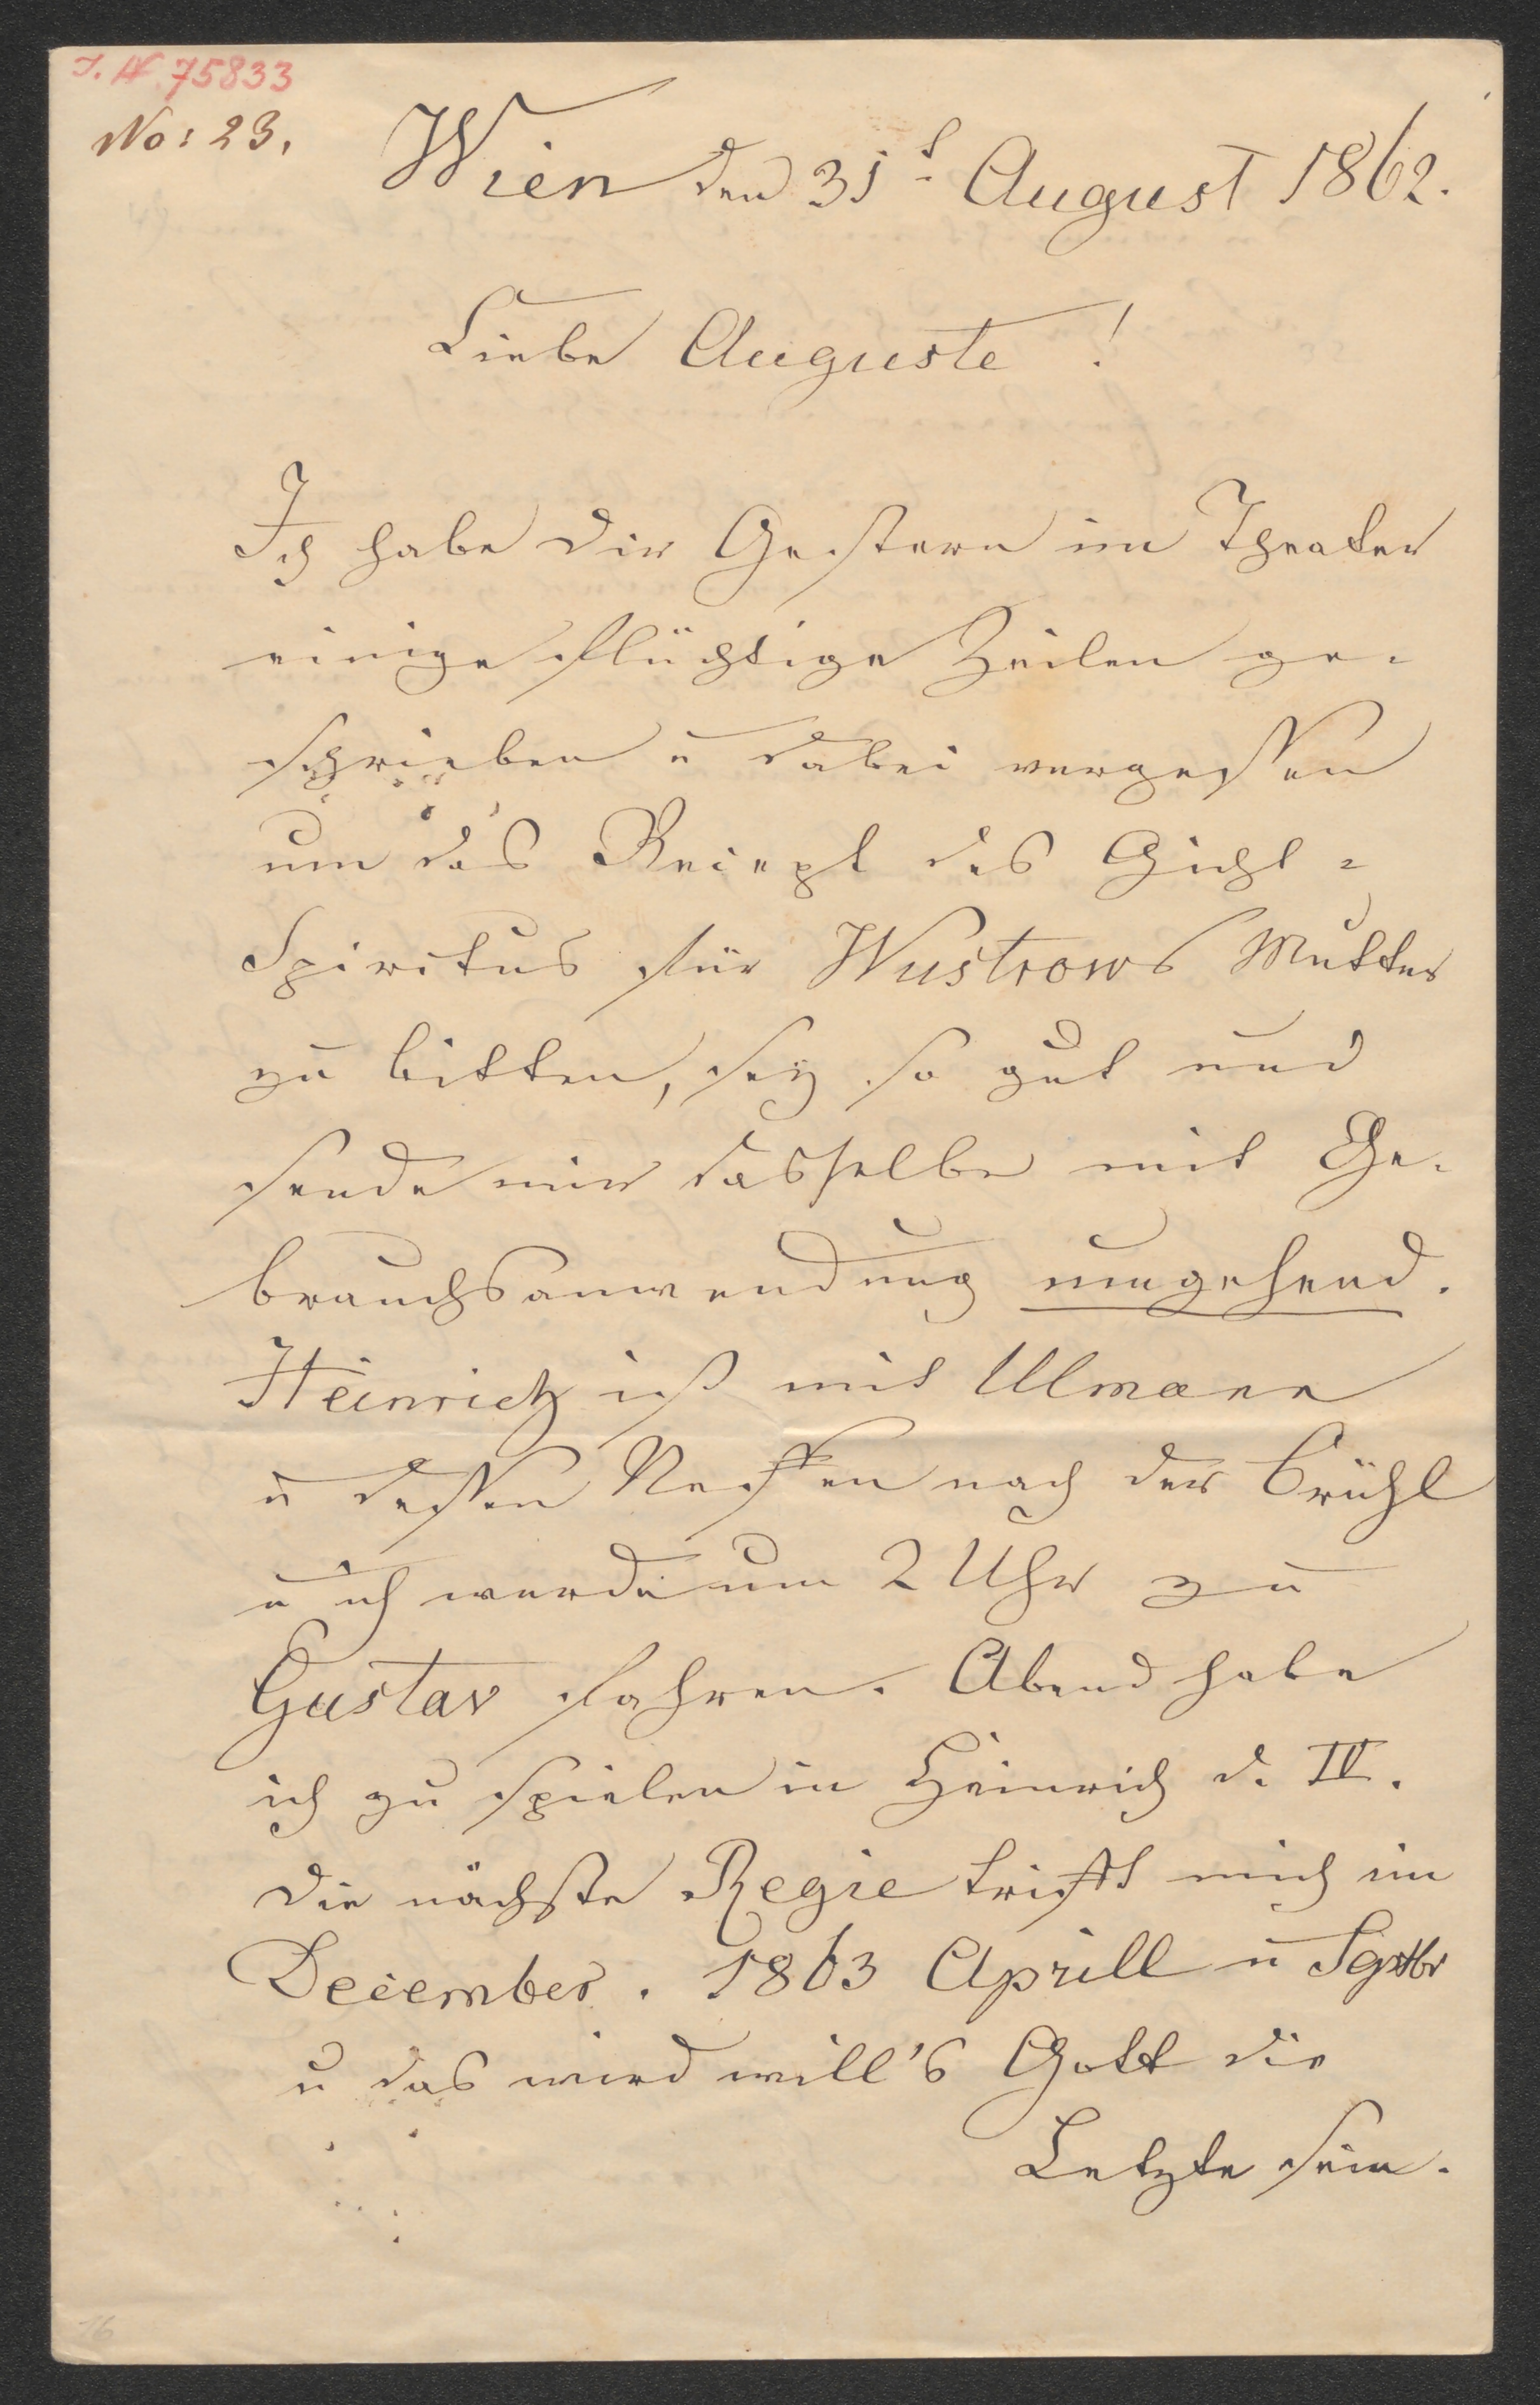 I. N. 75833
No: 23.
Wien den 31t August 1862.
Liebe Auguste!
Ich habe dir Gestern im Theater
einige flüchtige Zeilen ge-
schrieben u dabei vergessen
um das Recept des Gicht-
Spiritus für Wustrows Mutter
zu bitten, sey so gut und
sende mir dasselbe mit Ge-
brauchsanwendung umgehend.
Heinrich ist mit Ulmann
u dessen Neffen nach der Brühl
u ich werde um 2 Uhr zu
Gustav fahren. Abend habe
ich zu spielen in Heinrich d. IV.
Die nächste Regie trifft mich im
December. 1863 Aprill u Septbr
u das wird will's Gott die
Letzte sein.
16